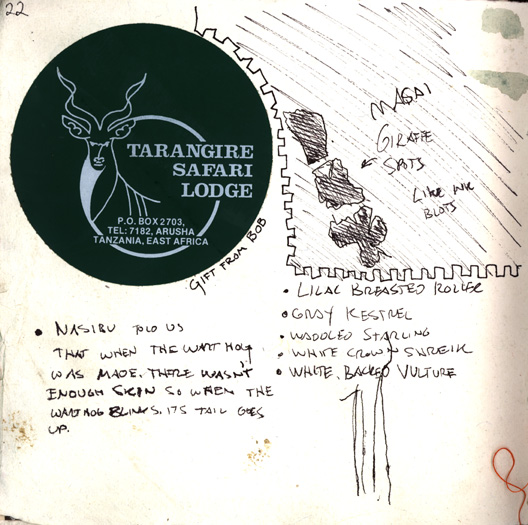 22
TARANGIRE
SAFARI
LODGE
P.O. BOX 2703,
TEL: 7182, ARUSHA
TANZANIA, EAST AFRICA
GIFT FROM BOB
MASAI
GIRAFFE
SPOTS
LIKE INK
BLOTS
• LILAC BREASTED ROLLER
• GRAY KESTREL
• WADDLED STARLING
• WHITE CROWN SHREIK
• WHITE BACKED VULTURE
• NASIBU TOLD US
THAT WHEN THE WART HOG
WAS MADE. THERE WASN'T
ENOUGH SKIN SO WHEN THE
WARTHOG BLINKS. ITS TAIL GOES
UP.